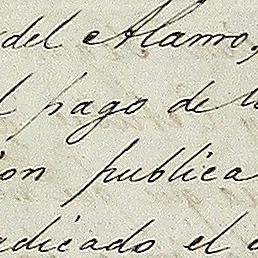 del Alamo,
pago de
ion publica
adicado el